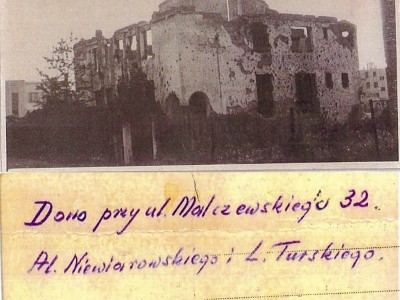 Dom przy ul. Malczewskiego 32.
Al. Niewiarowskiego i L. Turskiego.